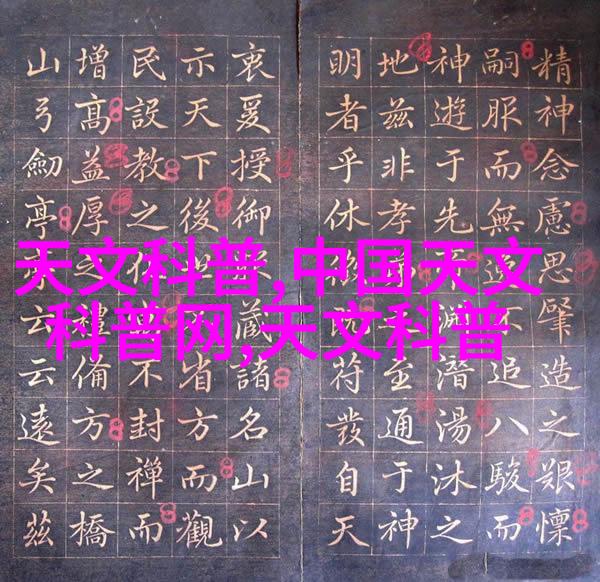 天文科普,中国天文
科普网,天文科普
精神念慮思肇造之艱懍
嗣服而無不追八駿而
神遊于先潛湯沐之
地茲非孝至通于神
明者乎休符發自天
衷爰授御藏諸名山以
示天下後省方而觀
民設教之不封禪而
增髙益厚之備方之橋
山弓劍亭云云遠矣茲